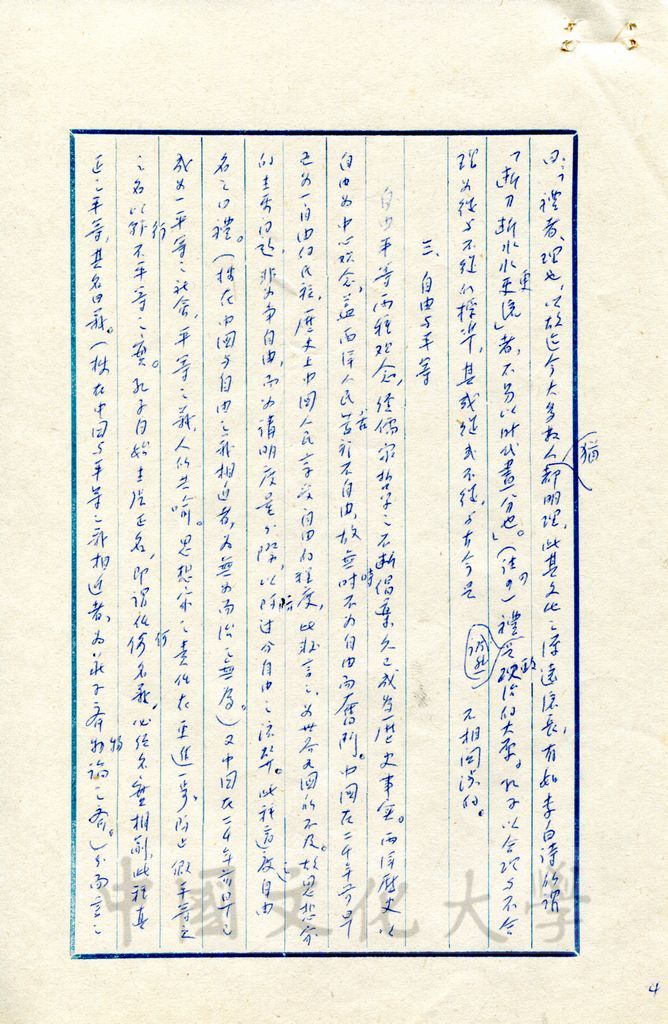 曰：「禮者，理也，以故迄今大多數人猶都明理，此其文化之深遠流長，有如李白詩所謂
「斷刀斷水水更流」者，不另以時代畫分也」。（註四）禮是政治的大本。孔子以合理與不合
理為從與不從的標準，其或從或不從，與古今是 不相關涉的。
三、自由與平等
自由平等兩種觀念，經儒家哲學之不斷倡棄久已成為歷史事實。西洋歷史以
自由為中心觀念，蓋西洋人民苦於不自由，故無時不為自由而奮鬥。中國在二千年前早
已為一自由的民族，歷史上中國人民享受自由的程度，此極言之，為世界各國所不及。故思想家
的主要問題，非為爭自由，而為講明度量分際，以防過分自由之流弊。此種適度自由
名之曰禮。（按在中國與自由之義相近者，為無為而治之無為）又中國在二千年前早已
成為一平等之社會，平等之義人所共喻。思想家之責任在更進一步，防止假平等之
名以行不平等之實。孔子自始主張正名，即謂任何名義，必經名實相副，此種真
正之平等，其名曰義。（按在中國與平等之義相近者，為莊子齊物論之齊。）分而言之
中國文化大學
4